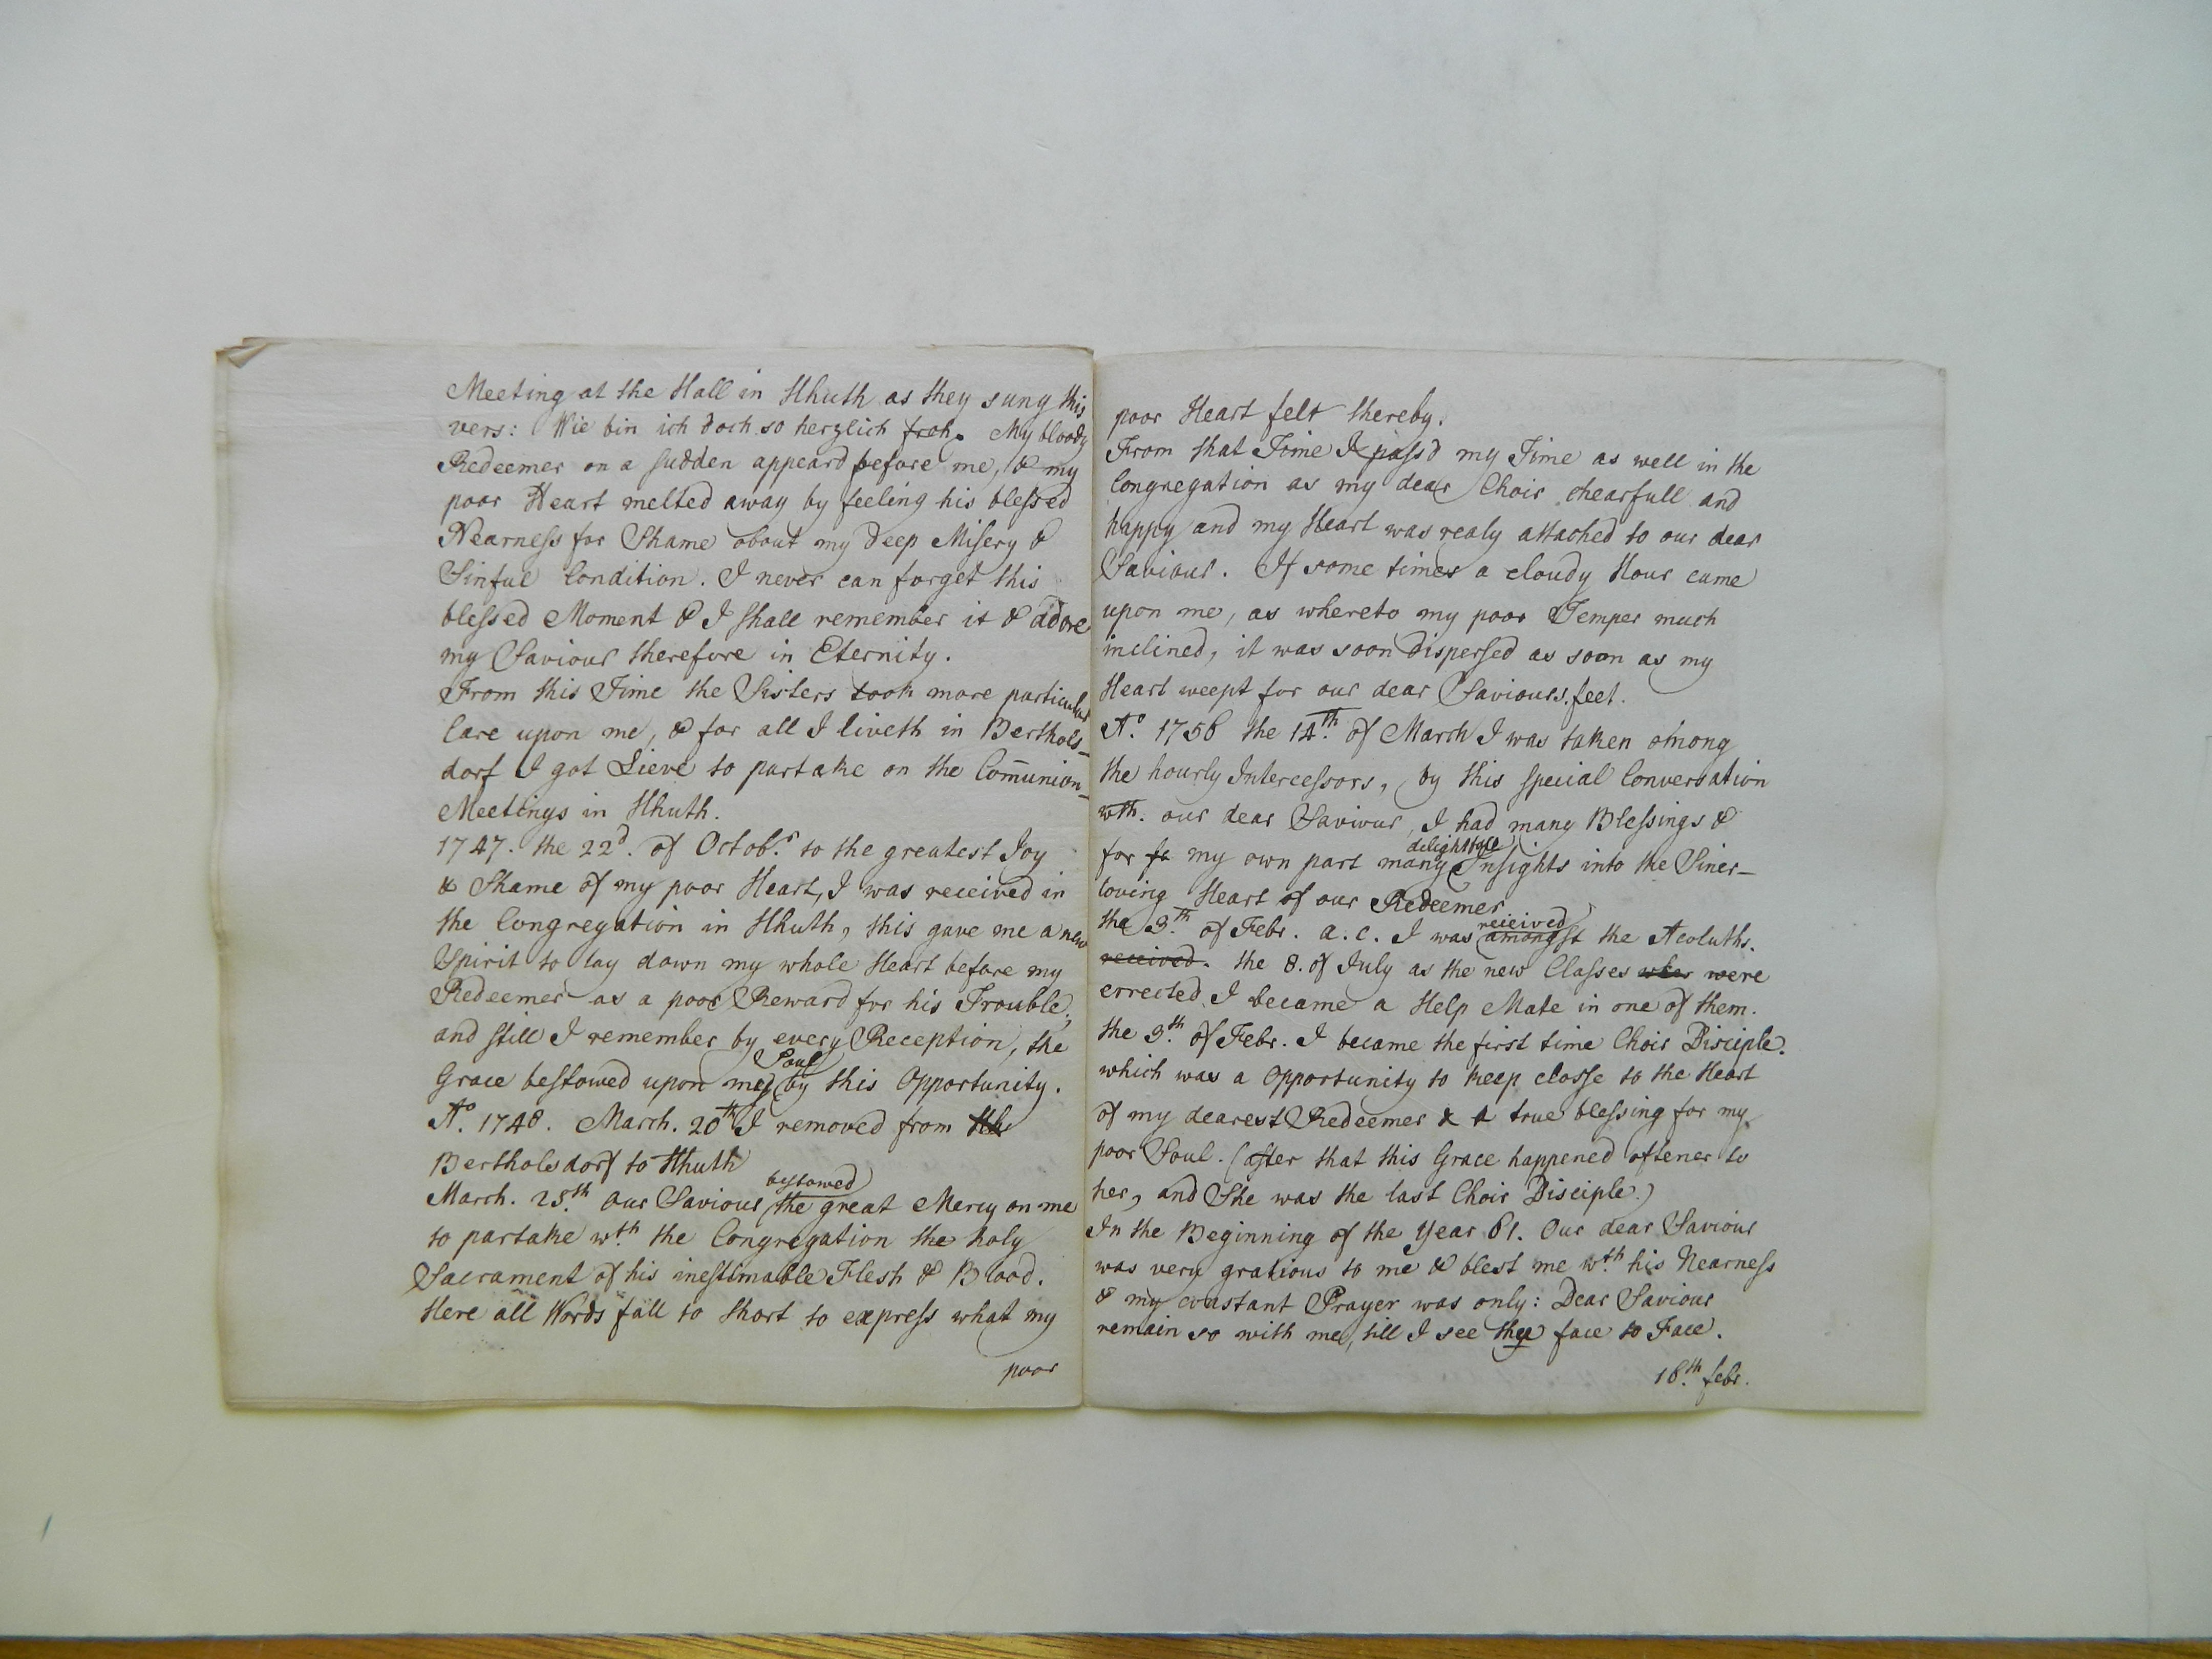 Meeting at the Hall in Hhuth as they sung this
vers: Wie bin ich doch so herzlich froh. My bloody
Redeemer on a sudden appeard before me, & my
poor Heart melted away by feeling his blessed
Nearness for Shame about my deep Misery &
Sinful Condition. I never can forget this
blessed Moment & I shall remember it & adore
my Saviour therefore in Eternity.
From this Time the Sisters took more particular
Care upon me, & for all I liveth in Berthols-
dorf I got Lieve to partake on the Com̅union-
Meetings in Hhuth.
1747. the 22d. of Octobr. to the greatest Joy
& Shame of my poor Heart, I was received in
the Congregation in Hhuth, this gave me a new
Spirit to lay down my whole Heart before my
Redeemer as a poor Reward for his Trouble,
and still I remember by every Reception, the
Soul
Grace bestowed upon my by this Opportunity.
Ao. 1748. March. 20th I removed from
Bertholsdorf to Hhuth
bestowed
March. 25th. Our Saviour the great Mercy on me
to partake wth. the Congregation the holy
Sacrament of his inestimable Flesh & Blood.
Here all Words fall to short to express what my
poor
poor Heart felt thereby.
From that Time I pass'd my Time as well in the
Congregation as my dear Choir chearfull and
happy and my Heart was realy attached to our dear
Saviour. If some times a cloudy Hour came
upon me, as whereto my poor Temper much
inclined, it was soon dispersed as soon as my
Heart weept for our dear Saviours feet.
Ao. 1756 the 14th. of March I was taken among
the hourly Intercessors, by this special Conversation
wth. our dear Saviour, I had many Blessings &
delightfull
for fr my own part many Insights into the Siner-
loving Heart of our Redeemer
received
the 3th. of Febr. a. c. I was amongst the Acoluths.
received. the 8. of July as the new Classes were
errected, I became a Help Mate in one of them.
the 3th. of Febr. I became the first time Choir Disciple.
which was a Opportunity to keep closse to the Heart
of my dearest Redeemer & a true blessing for my
poor Soul. (after that this Grace happened oftener to
her, and She was the last Choir Disciple.)
In the Beginning of the Year 61. Our dear Saviour
was very gratious to me & blest me wth. his Nearness
& my constant Prayer was only: Dear Saviour
remain so with me, till I see thee face to Face.
18th. febr.